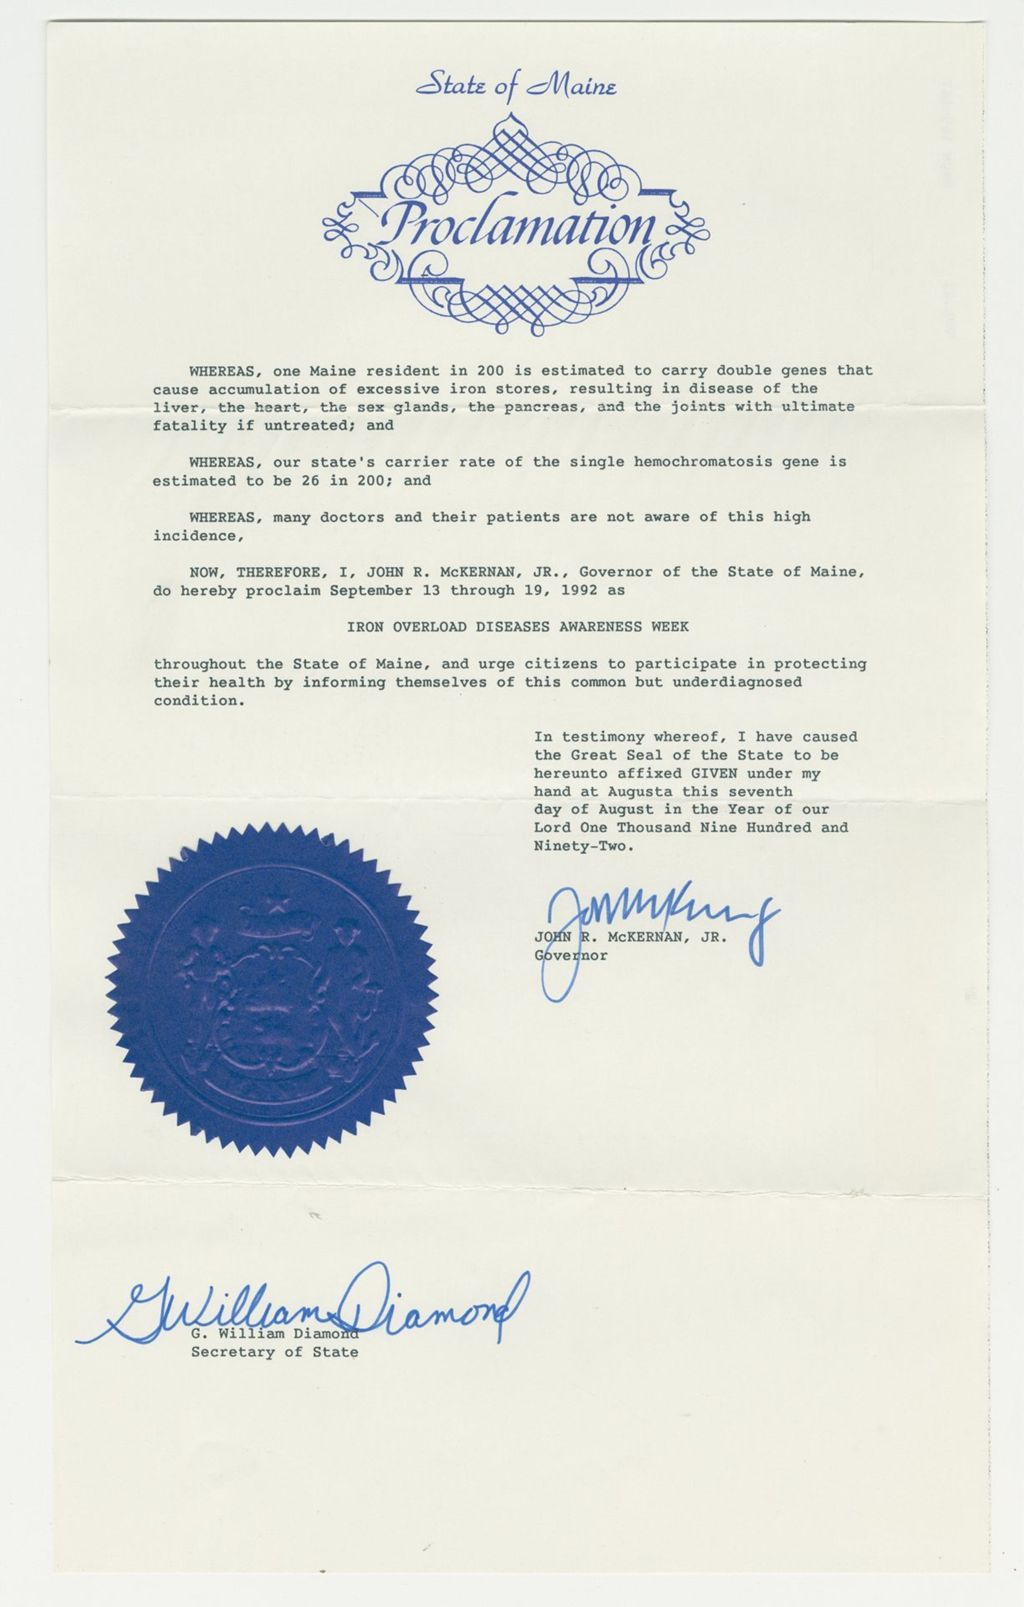 State of Maine
Proclamation
WHEREAS, one Maine resident in 200 is estimated to carry double genes that
cause accumulation of excessive iron stores, resulting in disease of the
liver, the heart, the sex glands, the pancreas, and the joints with ultimate
fatality if untreated; and
WHEREAS, our state's carrier rate of the single hemochromatosis gene is
estimated to be 26 in 200; and
WHEREAS, many doctors and their patients are not aware of this high
incidence,
NOW, THEREFORE, I, JOHN R. McKERNAN, JR., Governor of the State of Maine,
do hereby proclaim September 13 through 19, 1992 as
IRON OVERLOAD DISEASES AWARENESS WEEK
throughout the State of Maine, and urge citizens to participate in protecting
their health by informing themselves of this common but underdiagnosed
condition.
In testimony whereof, I have caused
the Great Seal of the State to be
hereunto affixed GIVEN under my
hand at Augusta this seventh
day of August in the Year of our
Lord One Thousand Nine Hundred and
Ninety-Two.
JOHN R. McKERNAN, JR.
Governor
G William Diamond
G. William Diamond
Secretary of State